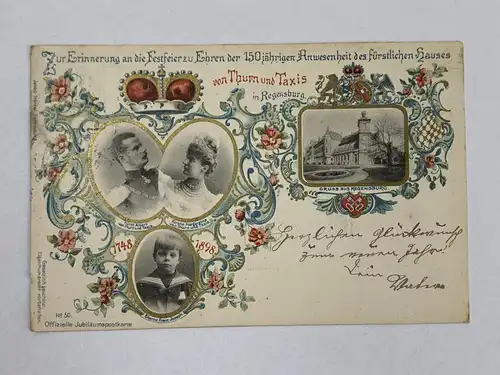 Zur Erinnerung an die Festfeier zu Ehren der 150 jährigen Anwesenheit des fürstlichen Hauses
von Thurn und Taxis
in Regensburg.
GRUSS AUS REGENSBURG.
1748
1898
Herzlichen Glückwunsch
zum neuen Jahr!
Dein
Vater
No 50.
Offizielle Jubiläumspostkarte
Gesetzlich geschützt.